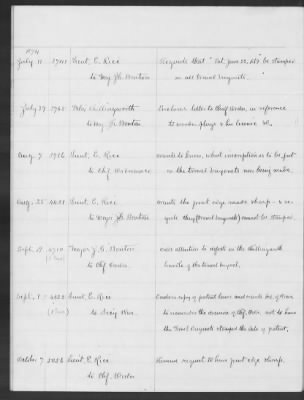 1874
July 11 Lieut. E. Rice Requests that "Pat. June 22, 69" be stamped
to Maj. J.G. Benton on all trowel bayonets.
July 29 Felix Chillingworth Encloses letter to Chief Ordn. in reference
to Maj. J.G. Benton to wooden plugs &
Aug. 7 Lieut. E. Rice wants to know what inscription is to be put
to Chf. Ordnance on the trowel bayonets now being made.
Aug. 25 Lieut. E. Rice wants the point edge made sharp &
to Major J.G. Benton (trowel bayonets) must be stamped.
Sept. Major J.G. Benton attention to defects in the Chillingworth
to Chf. Ordn. handle of the trowel bayonet.
Sept. Lieut. E. Rice Encloses copy of patent laws and wants Sec. of War
to Sec'y War to reconsider the decision of Chf. Ordn. not to have
the Trowel Bayonets stamped the date of patent.
October 7 Lieut. E. Rice Renews request to have point edge sharp.
to Chf. Ordn.